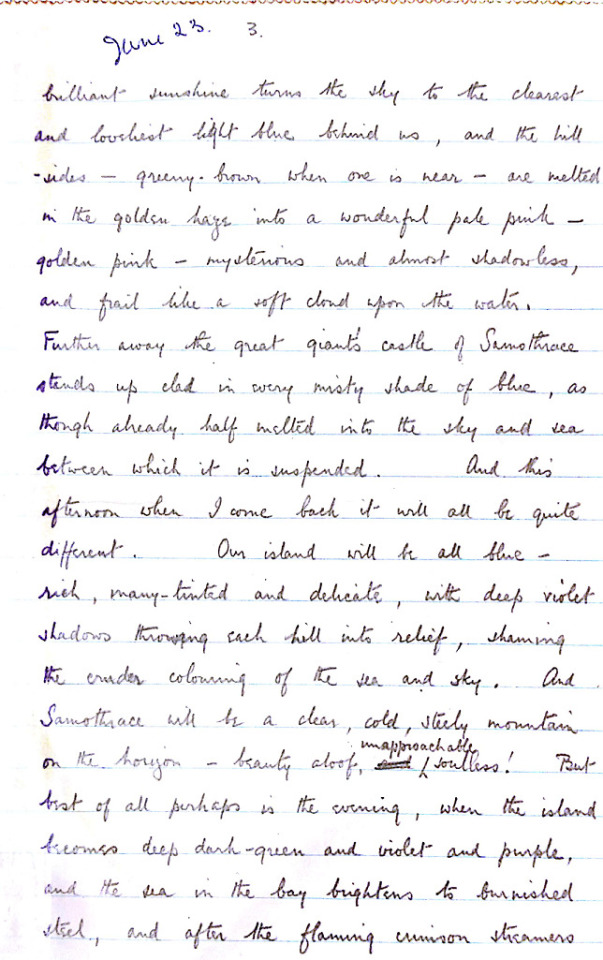 June 23. 3.
brilliant sunshine turns the sky to the clearest
and loveliest light blue behind us, and the hill
-sides – greeny-brown when one is near – are melted
in the golden haze into a wonderful pale pink –
golden pink – mysterious and almost shadowless,
and frail like a soft cloud upon the water.
Further away the great giant's castle of Samothrace
stands up clad in every misty shade of blue, as
though already half melted into the sky and sea
between which it is suspended. And this
afternoon when I come back it will all be quite
different. Our island will be all blue –
rich, many-tinted and delicate, with deep violet
shadows throwing each hill into relief, shaming
the cruder colouring of the sea and sky. And
Samothrace will be a clear, cold, steely mountain
on the horizon – beauty aloof, unapproachable, soulless! But
best of all perhaps is the evening, when the island
becomes deep dark-green and violet and purple,
and the sea in the bay brightens to burnished
steel, and after the flaming crimson streamers